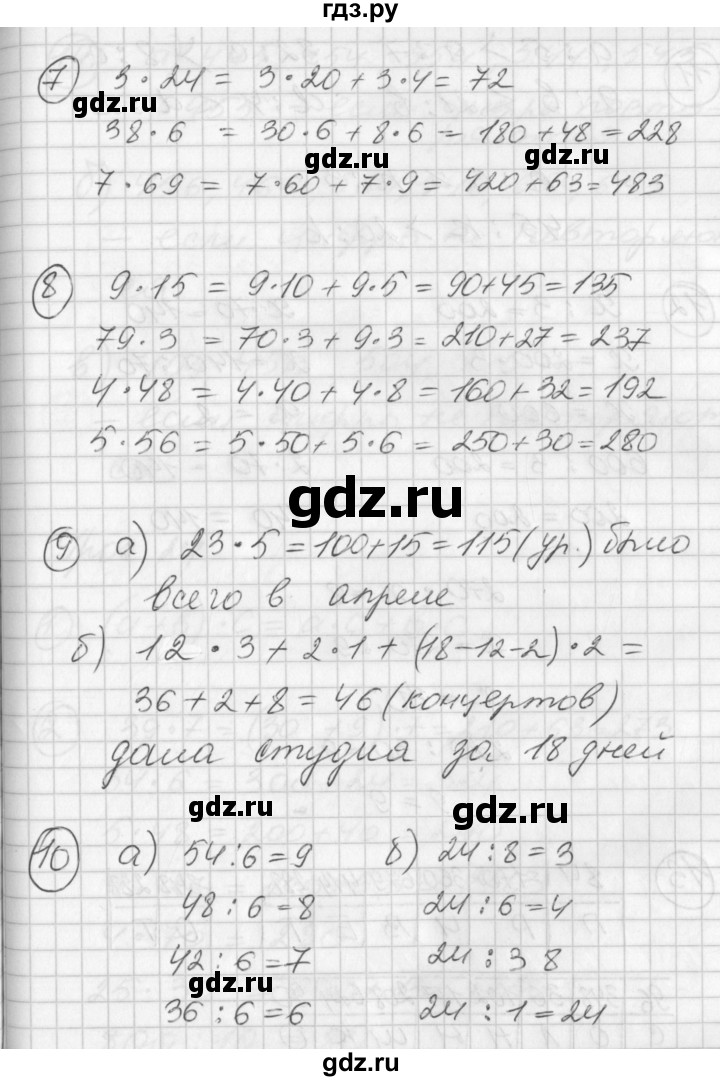 гдз.ру
7 3·24 = 3·20 + 3·4 = 72
gdz.ru
38·6 = 30·6 + 8·6 = 180 + 48 = 228
gdz.ru gdz.ru
7·69 = 7·60 + 7·9 = 420 + 63 = 483
8 9·15 = 9·10 + 9·5 = 90+45 = 135
79·3 = 70·3 + 9·3 = 210+27 = 237
4·48 = 4·40 + 4·8 = 160+32 = 192
5·56 = 5·50 + 5·6 = 250+30 = 280
gdz.ru
9 а) 23·5 = 100+15 = 115 (ур.) было
всего в апреле
б) 12·3 + 2·1 + (18-12-2)·2 =
36 + 2 + 8 = 46 (концертов)
дала студия за 18 дней
gdz.ru gdz.ru
10 а) 54:6=9 б) 24:8=3
48:6=8 24:6=4
42:6=7 24:3 8
gdz.ru
36:6=6 24:1=24
gdz.ru